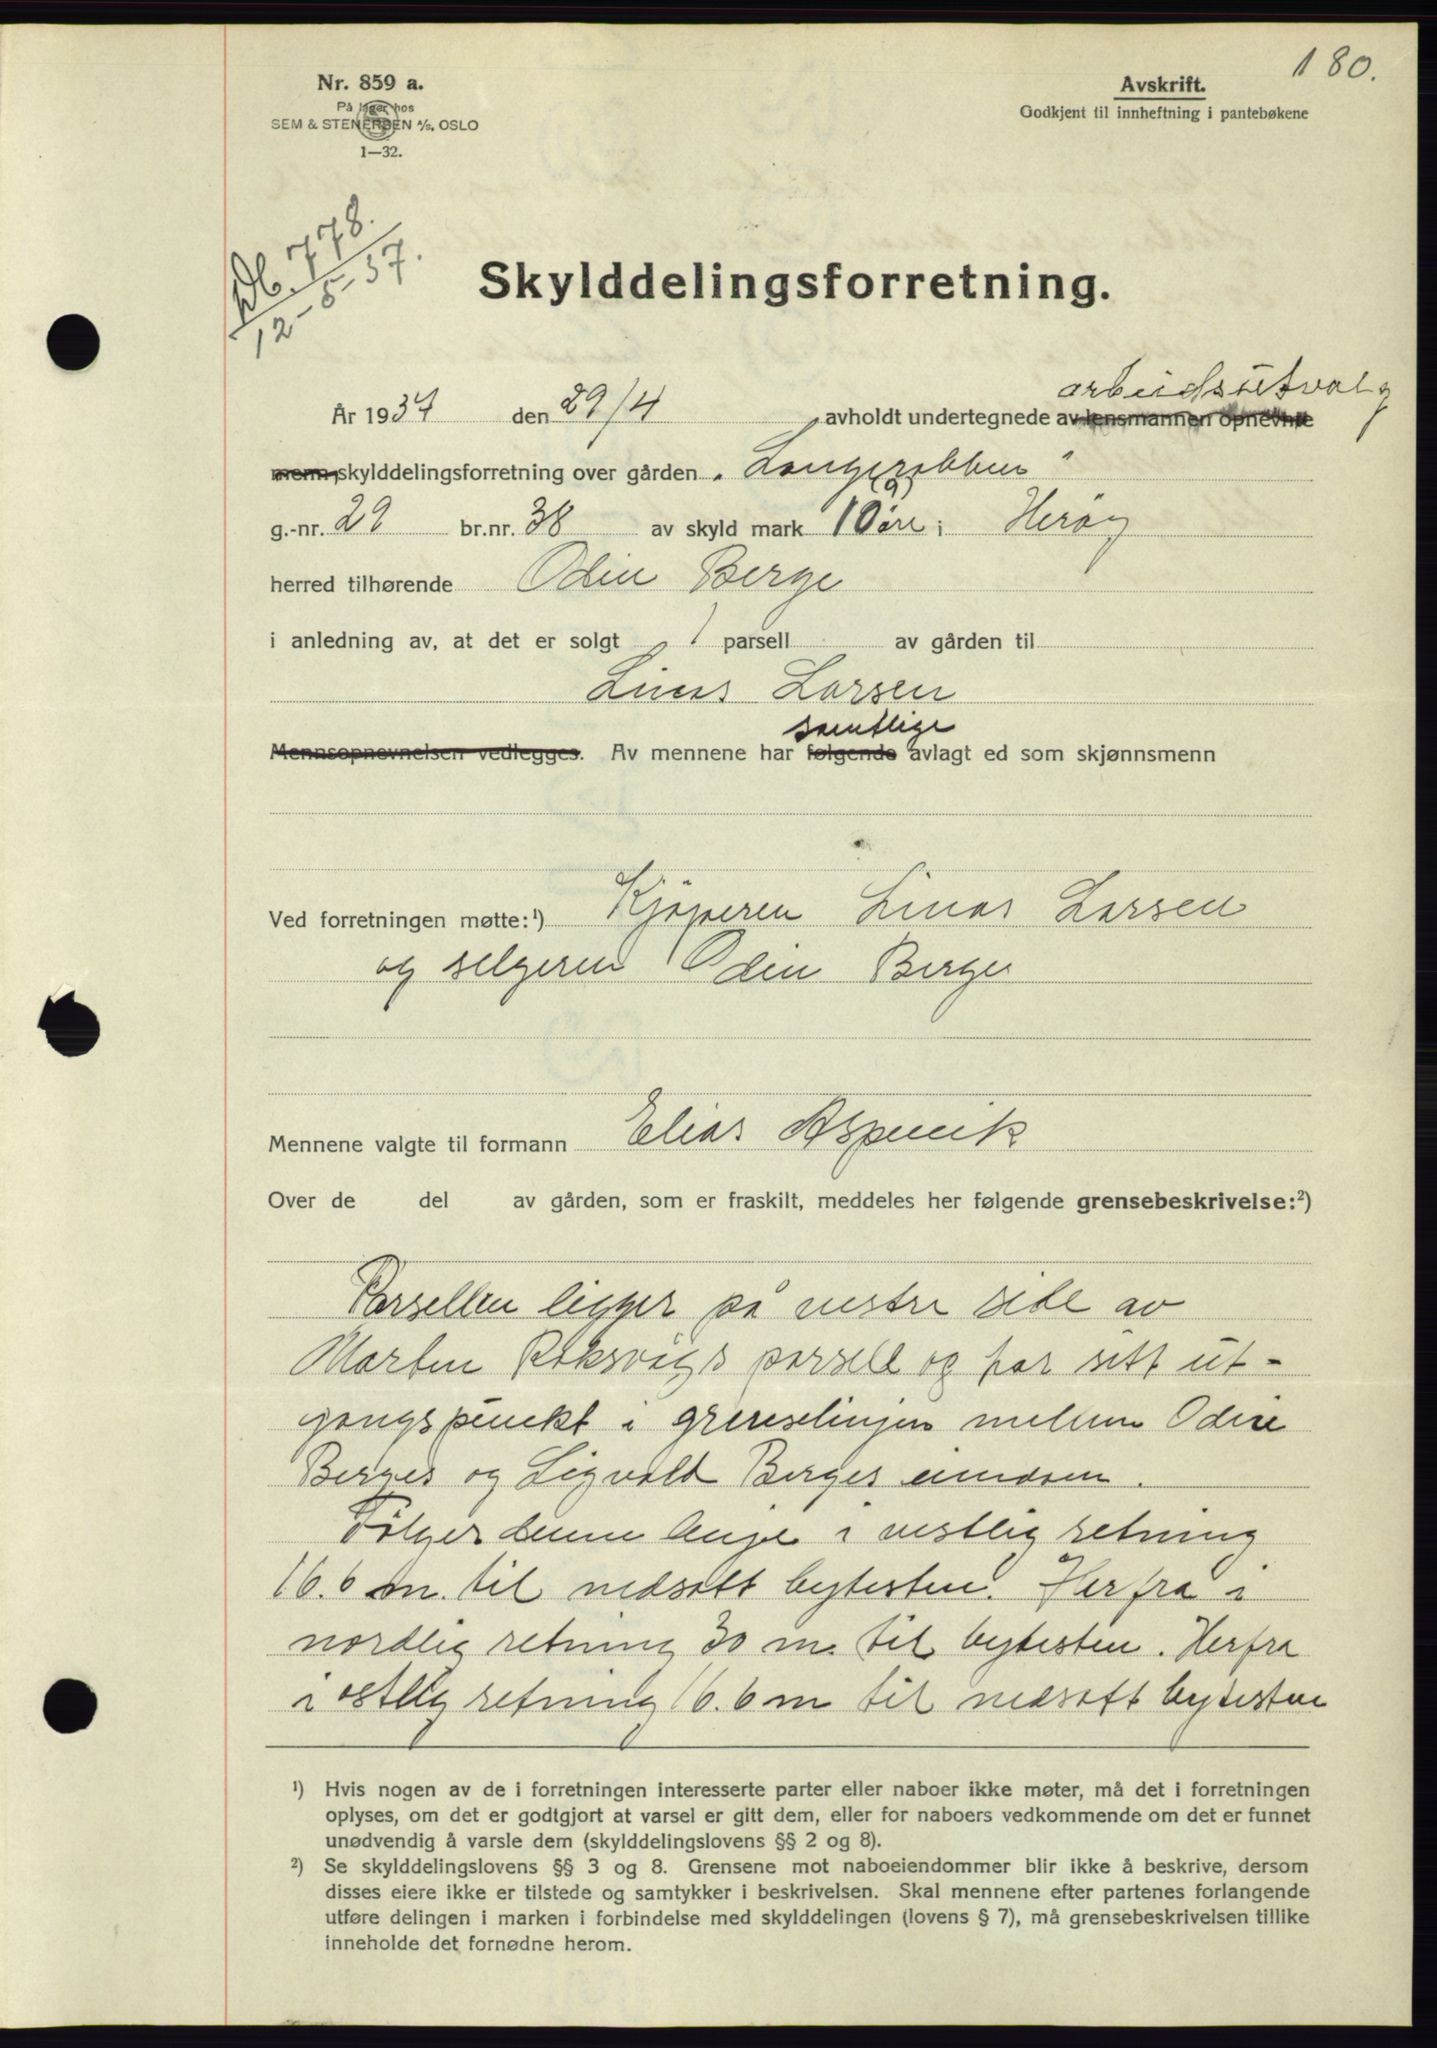 180.
Nr. 859 a.
På lager hos
SEM & STENERSEN A/S, OSLO
1—32.
Avskrift.
Godkjent til innheftning i pantebøkene
Db. 778.
12-5-37.
Skylddelingsforretning.
arbeidsutvalg
År 1937 den 29/4 avholdt undertegnede av lensmannen opnevnte
menn skylddelingsforretning over gården „Langerabben"
(9)
g.-nr. 29 br.nr. 38 av skyld mark 10 øre i Herøy
herred tilhørende Odin Berge
i anledning av, at det er solgt 1 parsell av gården til
Linas Larsen
samtlige
Mennsopnevnelsen vedlegges. Av mennene har følgende avlagt ed som skjønnsmenn
Ved forretningen møtte:¹) Kjøperen Linas Larsen
og selgeren Odin Berge
Mennene valgte til formann Elias Aspevik
Over de del av gården, som er fraskilt, meddeles her følgende grensebeskrivelse:²)
Parsellen ligger på vestre side av
Marten Roksvågs parsell og har sitt ut-
gangspunkt i grenselinjen mellem Odin
Berges og Sigvald Berges eiendom.
Følger denne linje i vestlig retning
16.6 m. til nedsatt bytesten. Herfra i
nordlig retning 30 m. til bytesten. Herfra
i østlig retning 16.6 m til nedsatt bytesten
¹) Hvis nogen av de i forretningen interesserte parter eller naboer ikke møter, må det i forretningen
oplyses, om det er godtgjort at varsel er gitt dem, eller for naboers vedkommende om det er funnet
unødvendig å varsle dem (skylddelingslovens §§ 2 og 8).
²) Se skylddelingslovens §§ 3 og 8. Grensene mot naboeiendommer blir ikke å beskrive, dersom
disses eiere ikke er tilstede og samtykker i beskrivelsen. Skal mennene efter partenes forlangende
utføre delingen i marken i forbindelse med skylddelingen (lovens § 7), må grensebeskrivelsen tillike
inneholde det fornødne herom.